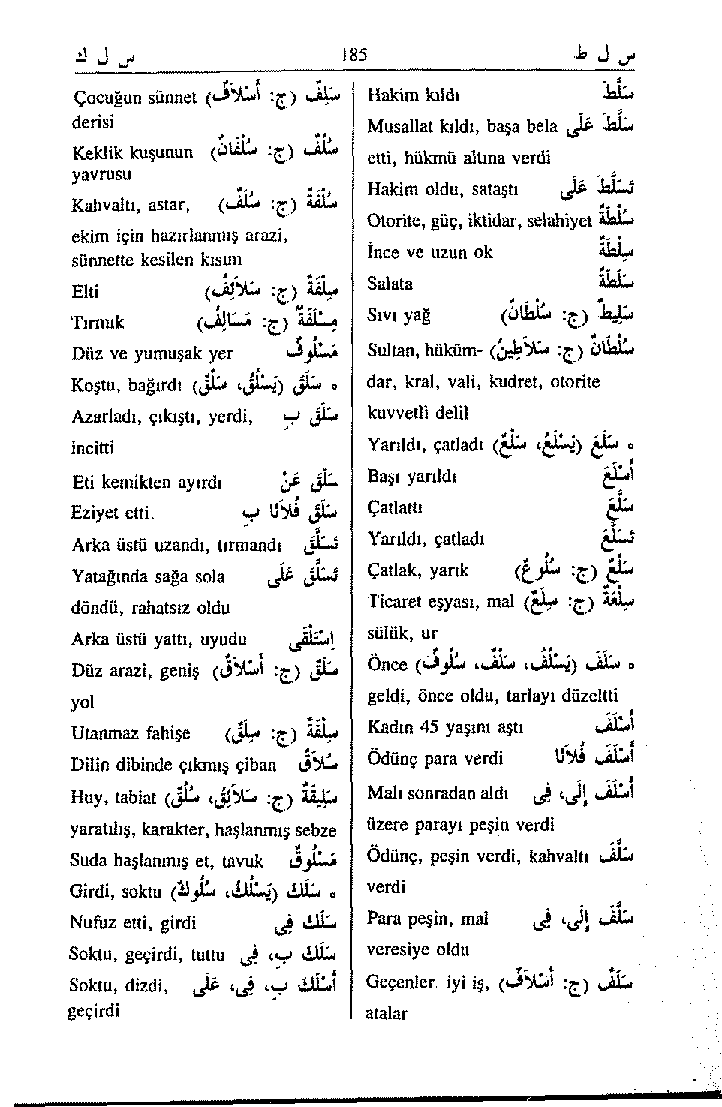 س ل ط 185 س ل ك
سَلَّطَ Hakim kıldı
سَلَّطَ عَلَى Musallat kıldı, başa bela
etti, hükmü altına verdi
تَسَلَّطَ عَلَى Hakim oldu, sataştı
سُلْطَة Otorite, güç, iktidar, selahiyet
سِلْطَة İnce ve uzun ok
سَلَطَة Salata
سَلِيط (ج: سُلْطَان) Sıvı yağ
سُلْطَان (ج: سَلَاطِين) Sultan, hüküm-
dar, kral, vali, kudret, otorite
kuvvetli delil
o سَلَعَ (يَسْلَعُ، سَلْعٌ) Yarıldı, çatladı
أَسْلَعَ Başı yarıldı
سَلَّعَ Çatlattı
تَسَلَّعَ Yarıldı, çatladı
سَلْع (ج: سُلُوع) Çatlak, yarık
سِلْعَة (ج: سِلَع) Ticaret eşyası, mal
sülük, ur
o سَلَفَ (يَسْلُفُ، سَلَفٌ، سُلُوفٌ) Önce
geldi, önce oldu, tarlayı düzeltti
أَسْلَفَ Kadın 45 yaşını aştı
أَسْلَفَ فُلَانًا Ödünç para verdi
أَسْلَفَ إِلَى، فِي Malı sonradan aldı
üzere parayı peşin verdi
سَلَّفَ Ödünç, peşin verdi, kahvaltı
verdi
سَلَّفَ إِلَى، فِي Para peşin, mal
veresiye oldu
سَلَف (ج: أَسْلَاف) Geçenler. iyi iş,
atalar
سَلِف (ج: أَسْلَاف) Çocuğun sünnet
derisi
سُلَف (ج: سُلْفَان) Keklik kuşunun
yavrusu
سُلْفَة (ج: سُلَف) Kahvaltı, astar,
ekim için hazırlanmış arazi,
sünnette kesilen kısım
سِلْفَة (ج: سَلَائِف) Elti
مِسْلَفَة (ج: مَسَالِف) Tırmık
مَسْلُوف Düz ve yumuşak yer
o سَلَقَ (يَسْلُقُ، سَلْقٌ) Koştu, bağırdı
سَلَقَ بِ Azarladı, çıkıştı, yerdi,
incitti
سَلَقَ عَنْ Eti kemikten ayırdı
سَلَقَ فُلَانًا بِ Eziyet etti.
تَسَلَّقَ Arka üstü uzandı, tırmandı
تَسَلَّقَ عَلَى Yatağında sağa sola
döndü, rahatsız oldu
اِسْتَلْقَى Arka üstü yattı, uyudu
سَلَق (ج: أَسْلَاق) Düz arazi, geniş
yol
سِلْقَة (ج: سِلَق) Utanmaz fahişe
سُلَاق Dilin dibinde çıkmış çiban
سَلِيقَة (ج: سَلَائِق، سُلُق) Huy, tabiat
yaratılış, karakter, haşlanmış sebze
مَسْلُوق Suda haşlanmış et, tavuk
o سَلَكَ (يَسْلُكُ، سُلُوك) Girdi, soktu
سَلَكَ فِي Nufuz etti, girdi
سَلَكَ بِ، فِي Soktu, geçirdi, tuttu
أَسْلَكَ بِ، فِي، عَلَى Soktu, dizdi,
geçirdi